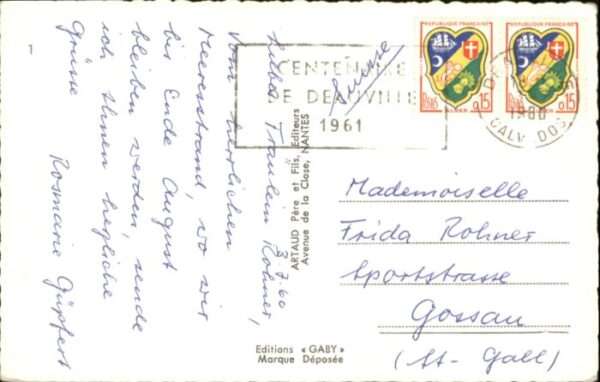 3.7.60
Liebe Fräulein Rohner,
Vom herrlichen
Meeresstrand, wo wir
bis Ende August
bleiben werden, sende
ich Ihnen herzliche
Grüsse
Rosmarie Güpfert
ARTAUD Père et Fils, Editeurs
Avenue de la Close, NANTES
Editions « GABY »
Marque Déposée
CENTENAIRE
DE DEAUVILLE
1961
Suisse
REPUBLIQUE FRANÇAISE
POSTES
0,15
ALGER
REPUBLIQUE FRANÇAISE
0,15
1960
CALVADOS
Mademoiselle
Frida Rohner
Sportstrasse
Gossau
(St-Gall)